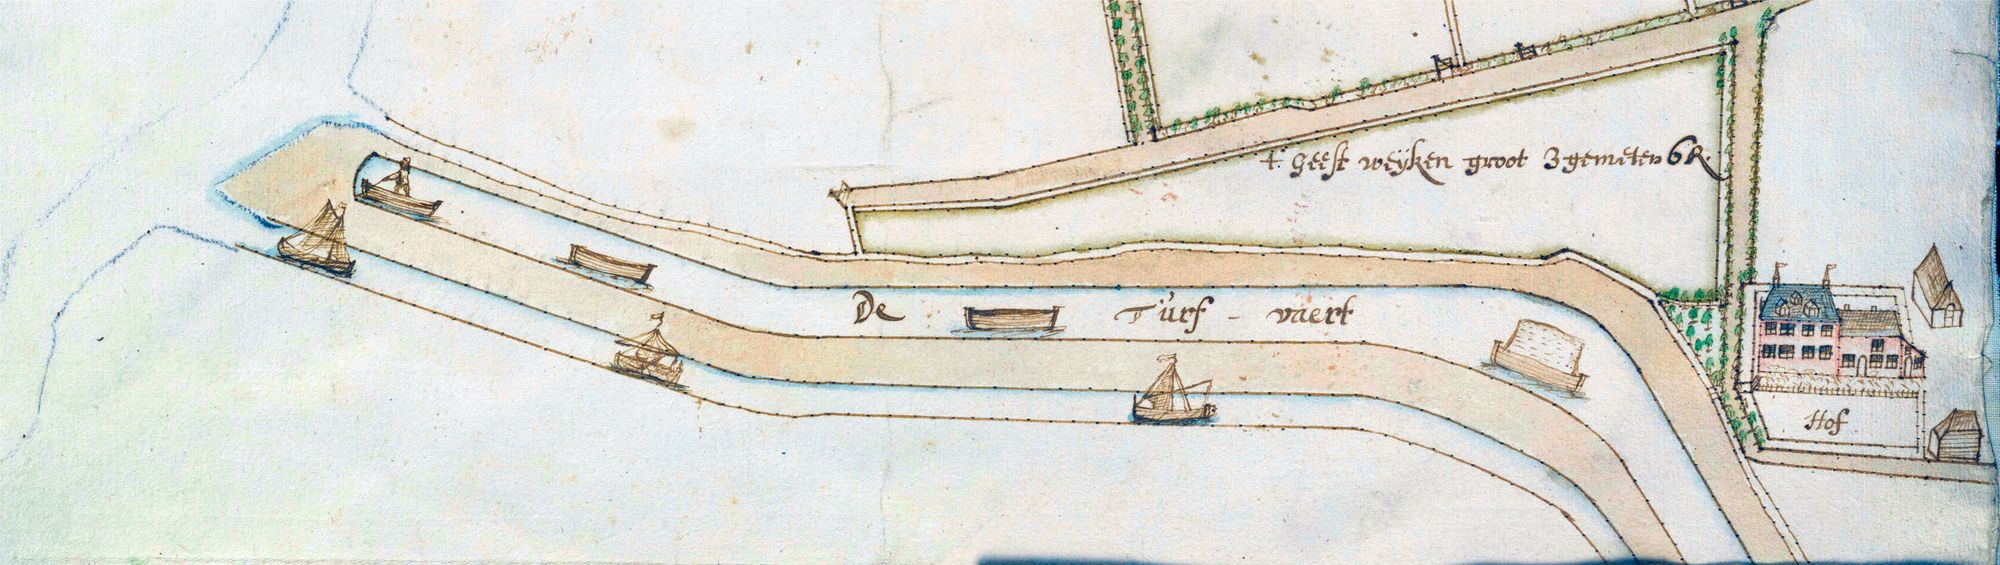 t' Geest weyken groot 3 gemeten 6 R.
De Turf - vaert
Hof